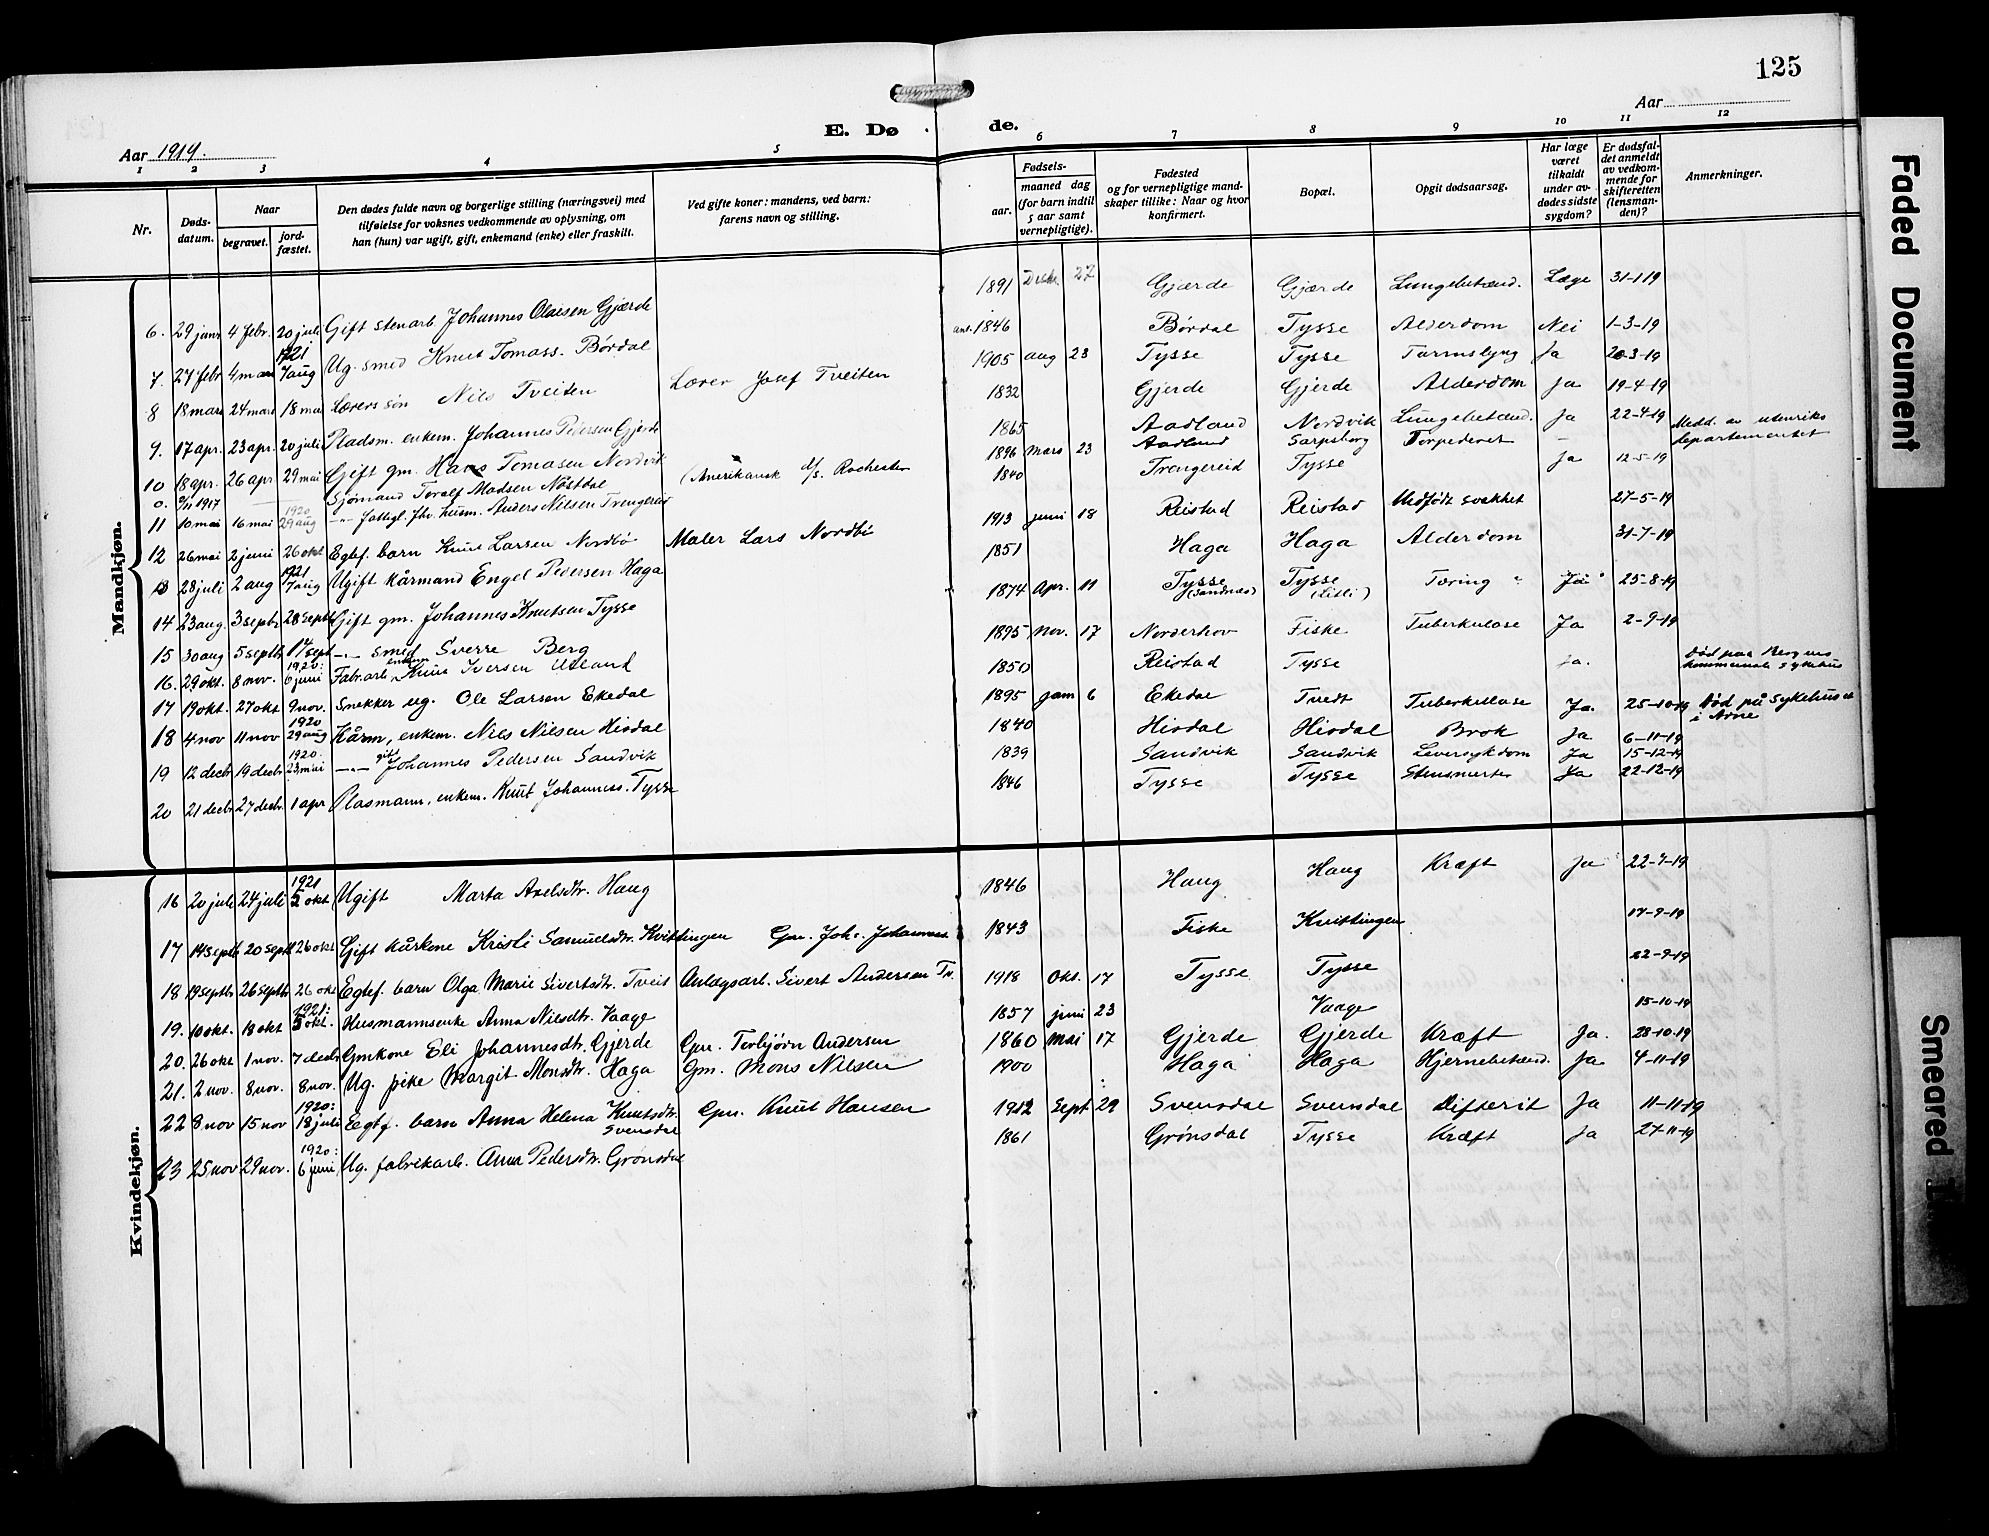 125
Aar 1919. E. Døde. Aar
1 2 3 4 5 6 7 8 9 10 11 12
Nr. Døds-datum. Naar begravet. jord-fæstet. Den dødes fulde navn og borgerlige stilling (næringsvei) med tilføielse for voksnes vedkommende av oplysning, om han (hun) var ugift, gift, enkemand (enke) eller fraskilt. Ved gifte koner: mandens, ved barn: farens navn og stilling. Fødsels- aar. maaned dag (for barn indtil 5 aar samt vernepligtige). Fødested og for vernepligtige mandskaper tillike: Naar og hvor konfirmert. Bopæl. Opgit dødsaarsag. Har læge været tilkaldt under avdødes sidste sygdom? Er dødsfaldet anmeldt av vedkommende for skifteretten (lensmanden)? Anmerkninger.
Mandkjøn.
6. 29 janr 4 febr. 20 juli Gift stenarb. Johannes Olaisen Gjærde 1891 27 Gjærde Gjærde Lungebetænd. Læge 31-1-19
7. 27 febr 4 mars 1921 7 aug Ug. smed Knut Tomass. Børdal ant. 1846 Børdal Tysse Alderdom Nei 1-3-19
8 18 mars 24 mars 18 mai Lærers søn Nils Tveiten Lærer Josef Tveiten 1905 aug 23 Tysse Tysse Tarmslyng Ja 20-3-19
9. 17 apr. 23 apr. 20 juli Pladsm. enkem. Johannes Pedersen Gjerde 1832 Gjerde Gjerde Alderdom Ja 19-4-19
10 18 apr. 26 apr 29 mai Gift gm. Hans Tomasen Nordvik 1865 Aadland Nordvik Lungebetænd. Ja 22-4-19
0. 9/11 1917 — Sjømand Toralf Madsen Nøstdal (Amerikansk d/s. Rochester 1896 Mars 23 Aadland Sarpsborg Torpederet — Medd. av utenriks departementet
11 10 mai 16 mai 1920 29 aug —"— Fattigl. fhv. husm. Anders Nilsen Trengereid 1840 Trengereid Tysse Ja 12-5-19
12 26 mai 2 juni 26 okt Egtef. barn Knut Larsen Nordbø Maler Lars Nordbø 1913 juni 18 Reistad Reistad Medfødt svakhet 27-5-19
13 28 juli 2 aug 1921 7 aug Ugift kårmand Engel Pedersen Haga 1851 Haga Haga Alderdom 31-7-19
14 23 aug. 3 septbr 28 septbr Gift gm. Johannes Knutsen Tysse 1874 Apr. 11 Tysse (Sandnes) Tysse Tæring Ja 25-8-19
15 30 aug 5 septbr 14 sept —"— smed Sverre Berg 1895 Nov. 17 Norderhov Fiske Tuberkulose Ja 2-9-19
16. 29 okt. 8 nov. 1920: 6 juni Fabr. arb. enkem Knut Iversen Utland 1850 Reistad Tysse Ja. Død paa Bergens kommunale sykehus
17 19 okt. 27 okt 9 nov. Snekker ug. Ole Larsen Ekedal 1895 jan 6 Ekedal Tvedt Tuberkulose Ja. 25-10-19 Død på Sykehuset i Arne
18 4 nov 11 nov 1920 29 aug Kårm, enkem. Nils Nilsen Hisdal 1840 Hisdal Hisdal Brok Ja 6-11-19
19 12 decbr 19 decbr 1920: 23 mai —"— gift Johannes Pedersen Sandvik 1839 Sandvik Sandvik Leversykdom Ja 15-12-19
20 21 decbr 27 decbr. 1 apr Plasmann, enkem. Knut Johanness. Tysse 1846 Tysse Tysse Stensmerter Ja 22-12-19
Kvindekjøn.
16 20 juli 24 juli 1921 2 okt Ugift Marta Axelsdtr. Haug 1846 Haug Haug Kræft Ja 22-7-19
17 14 septb 20 septb 26 okt Gift kårkone Kristi Samuelsdtr. Kvittingen Gm. Joh. Johannes. 1843 Fiske Kvittingen 17-9-19
18 19 septbr 26 septbr 26 okt Egtef. barn Olga Marie Sivertsdtr. Tveit Anlægsarb. Sivert Andersen Tv. 1918 Okt. 17 Tysse Tysse 22-9-19
19. 10 okt. 18 okt 1921: 2 okt. Husmannsenke Anna Nilsdtr. Vaage 1857 juni 23 Vaage 15-10-19
20. 26 okt 1 nov. 7 decbr Gmkone Eli Johannesdtr. Gjerde Gm. Torbjørn Andersen 1860 Mai 17 Gjerde Gjerde Kræft Ja. 28-10-19
21. 2 nov. 8 nov. 8 nov. Ug. pike Margit Monsdtr. Haga Gm. Mons Nilsen 1900 Haga Haga Hjernebetænd. Ja 4-11-19
22 8 nov 15 nov 1920: 18 juli Egtf. barn Anna Helena Knutsdtr. Svensdal Gm. Knut Hansen 1912 Sept 29 Svensdal Svensdal Difterit Ja 11-11-19
23 25 nov 29 nov. 1920: 6 juni Ug. fabrikarb. Anna Pedersdtr. Grønsdal 1861 Grønsdal Tysse Kræft Ja 27-11-19
Faded Document
Smeared